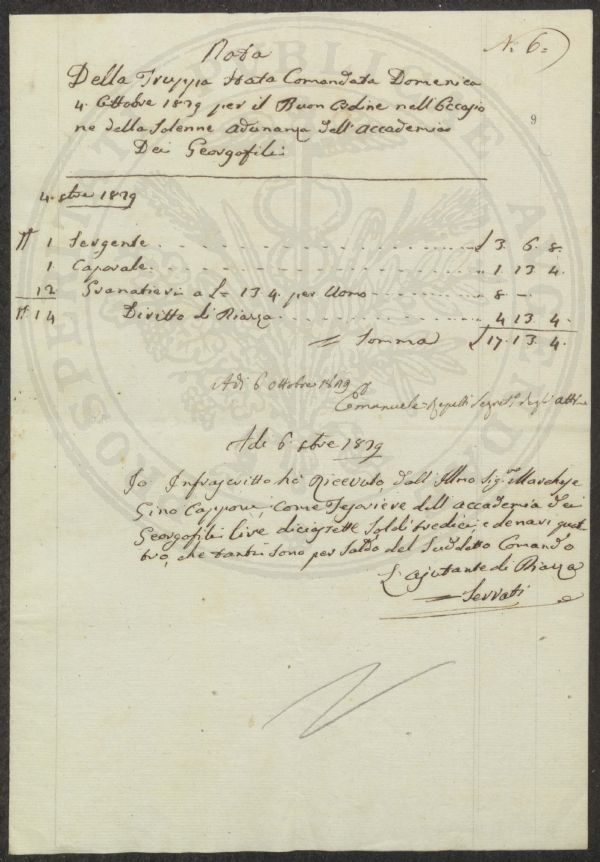 N. 6=
Nota
Della Truppa stata Comandata Domenica
4. Ottobre 1829 per il Buon Ordine nell'Occasio
ne della Solenne adunanza dell'accademia
Dei Georgofili
9
4. 8bre 1829
N 1 Sergente £ 3 6 8
1 Caporale 1 13 4
12 Granatieri a L= 13 4 per Uomo 8 —
N 14 Diritto di Piazza 4 13 4
= Somma £ 17. 13 4.
Adi 6 Ottobre 1829
Emanuele Repetti Segret.º degli atti
Adi 6 8bre 1829
Io Infrascritto hò Ricevuto dall'Illmo Sig.re Marchese
Gino Capponi, come Tesoriere dell'accademia dei
Georgofili lire diciasette Soldi tredici, e denari quat
tro, che tanti sono per Saldo del Suddetto Comando
L'ajutante di Piazza
= Serrati
PROSPERITATI PUBLICAE AUGENDAE